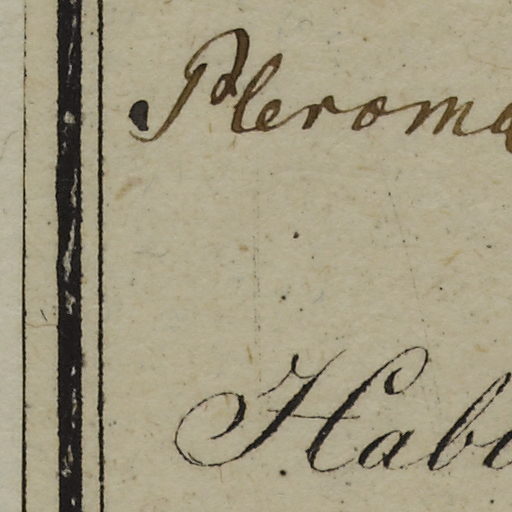 Pleroma
Hab